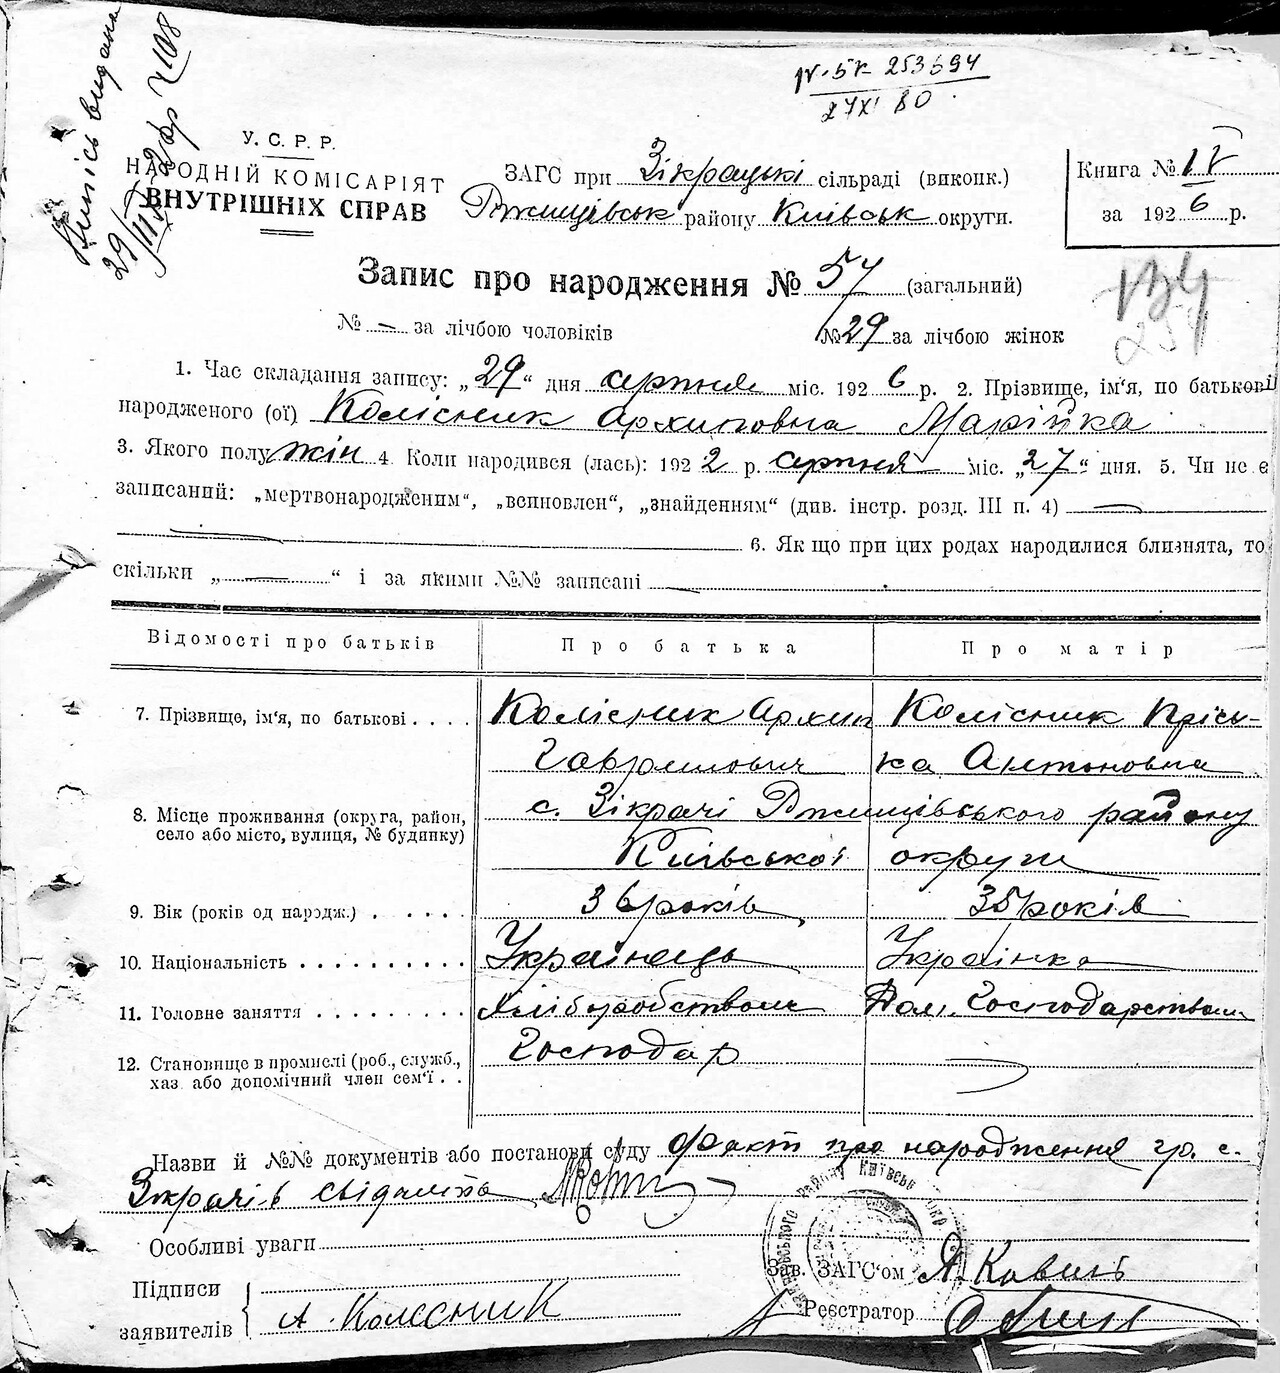 Випись видана
29/III 2/др ч 108
N. 5к 253594
27 XI 80.
У. С. Р. Р.
НАРОДНІЙ КОМІСАРІЯТ
ВНУТРІШНІХ СПРАВ
ЗАГС при Зікрацькі сільраді (виконк.)
Ржищівськ району Київськ округи.
Книга № IV
за 1926 р.
Запис про народження № 57 (загальний)
№ — за лічбою чоловіків № 29 за лічбою жінок
1. Час складання запису: „29“ дня серпня міс. 1926 р. 2. Прізвище, ім'я, по батькові
народженого (ої) Колісник Архиповна Марійка
3. Якого полу жін 4. Коли народився (лась): 1922 р. серпня міс. „27“ дня. 5. Чи не є
записаний: „мертвонародженим“, „всиновлен“, „знайденням“ (див. інстр. розд. III п. 4) —
— 6. Як що при цих родах народилися близнята, то
скільки „ — “ і за якими №№ записані —
Відомості про батьків Про батька Про матір
7. Прізвище, ім'я, по батькові . . . . Колісник Архип Колісник Прісь-
Гаврилович ка Антоновна
8. Місце проживання (округа, район, с. Зікрачі Ржищівського району
село або місто, вулиця, № будинку)
Київської округи
9. Вік (років од народж.) . . . . . 36 років 35 років
10. Національність . . . . . . . . . . Українець Українка
11. Головне заняття . . . . . . . . . Хліборобством Дом. Господарством
12. Становище в промислі (роб., служб., Господар —
хаз. або допомічний член сем'ї . .
Назви й №№ документів або постанови суду Факт про народження гр. с.
Зікрачів свідалиха
Особливі уваги
Підписи
заявителів А. Колесник
Зав. ЗАГС'ом
Реєстратор